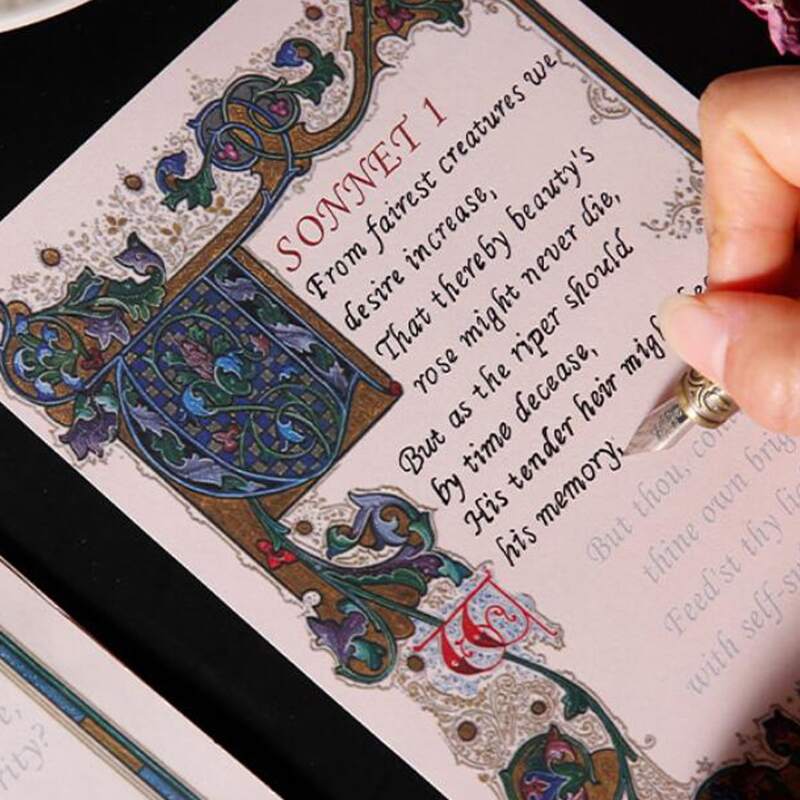 SONNET 1
From fairest creatures we
desire increase,
That thereby beauty's
rose might never die,
But as the riper should
by time decease,
His tender heir
his memory:
But thou,
thine own
Feed'st thy
with